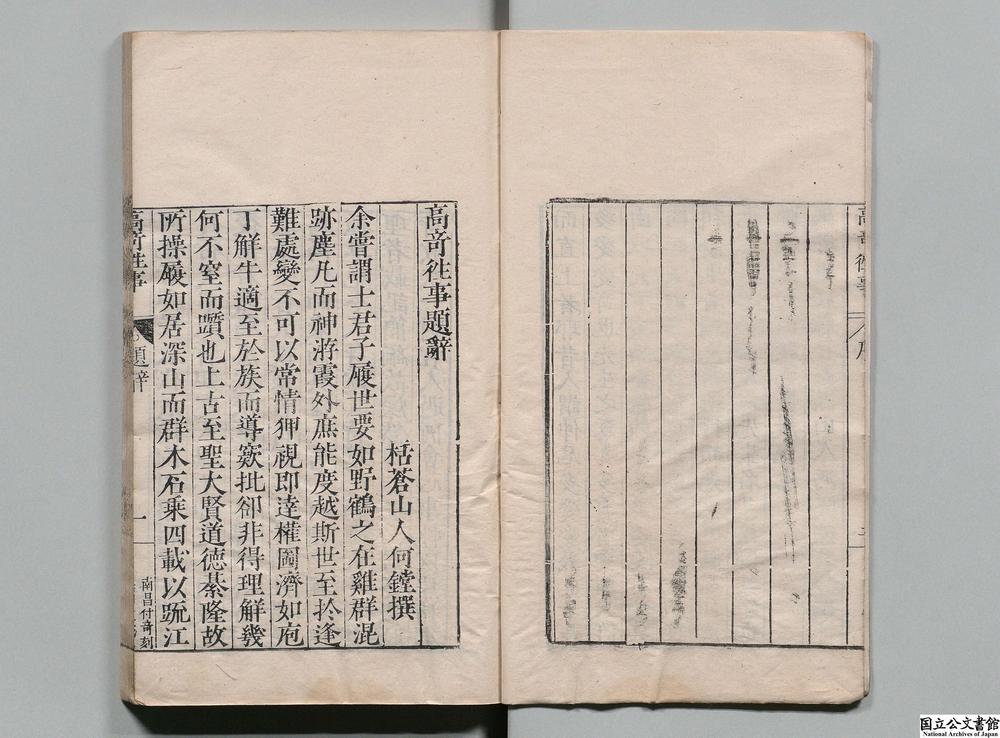 高奇徃事
序
高奇徃事題辭
栝蒼山人何鏜撰
余嘗謂士君子履世要如野鶴之在雞群混
跡塵凡而神游霞外庶能度越斯世至於逢
難處變不可以常情狎視即達權圖濟如庖
丁解牛適至於族而導窾批卻非得理解幾
何不窒而躓也上古至聖大賢道德綦隆故
所操履如居深山而群木石乘四載以疏江
高奇徃事
題辭
一
南昌付奇刻
国立公文書館
National Archives of Japan